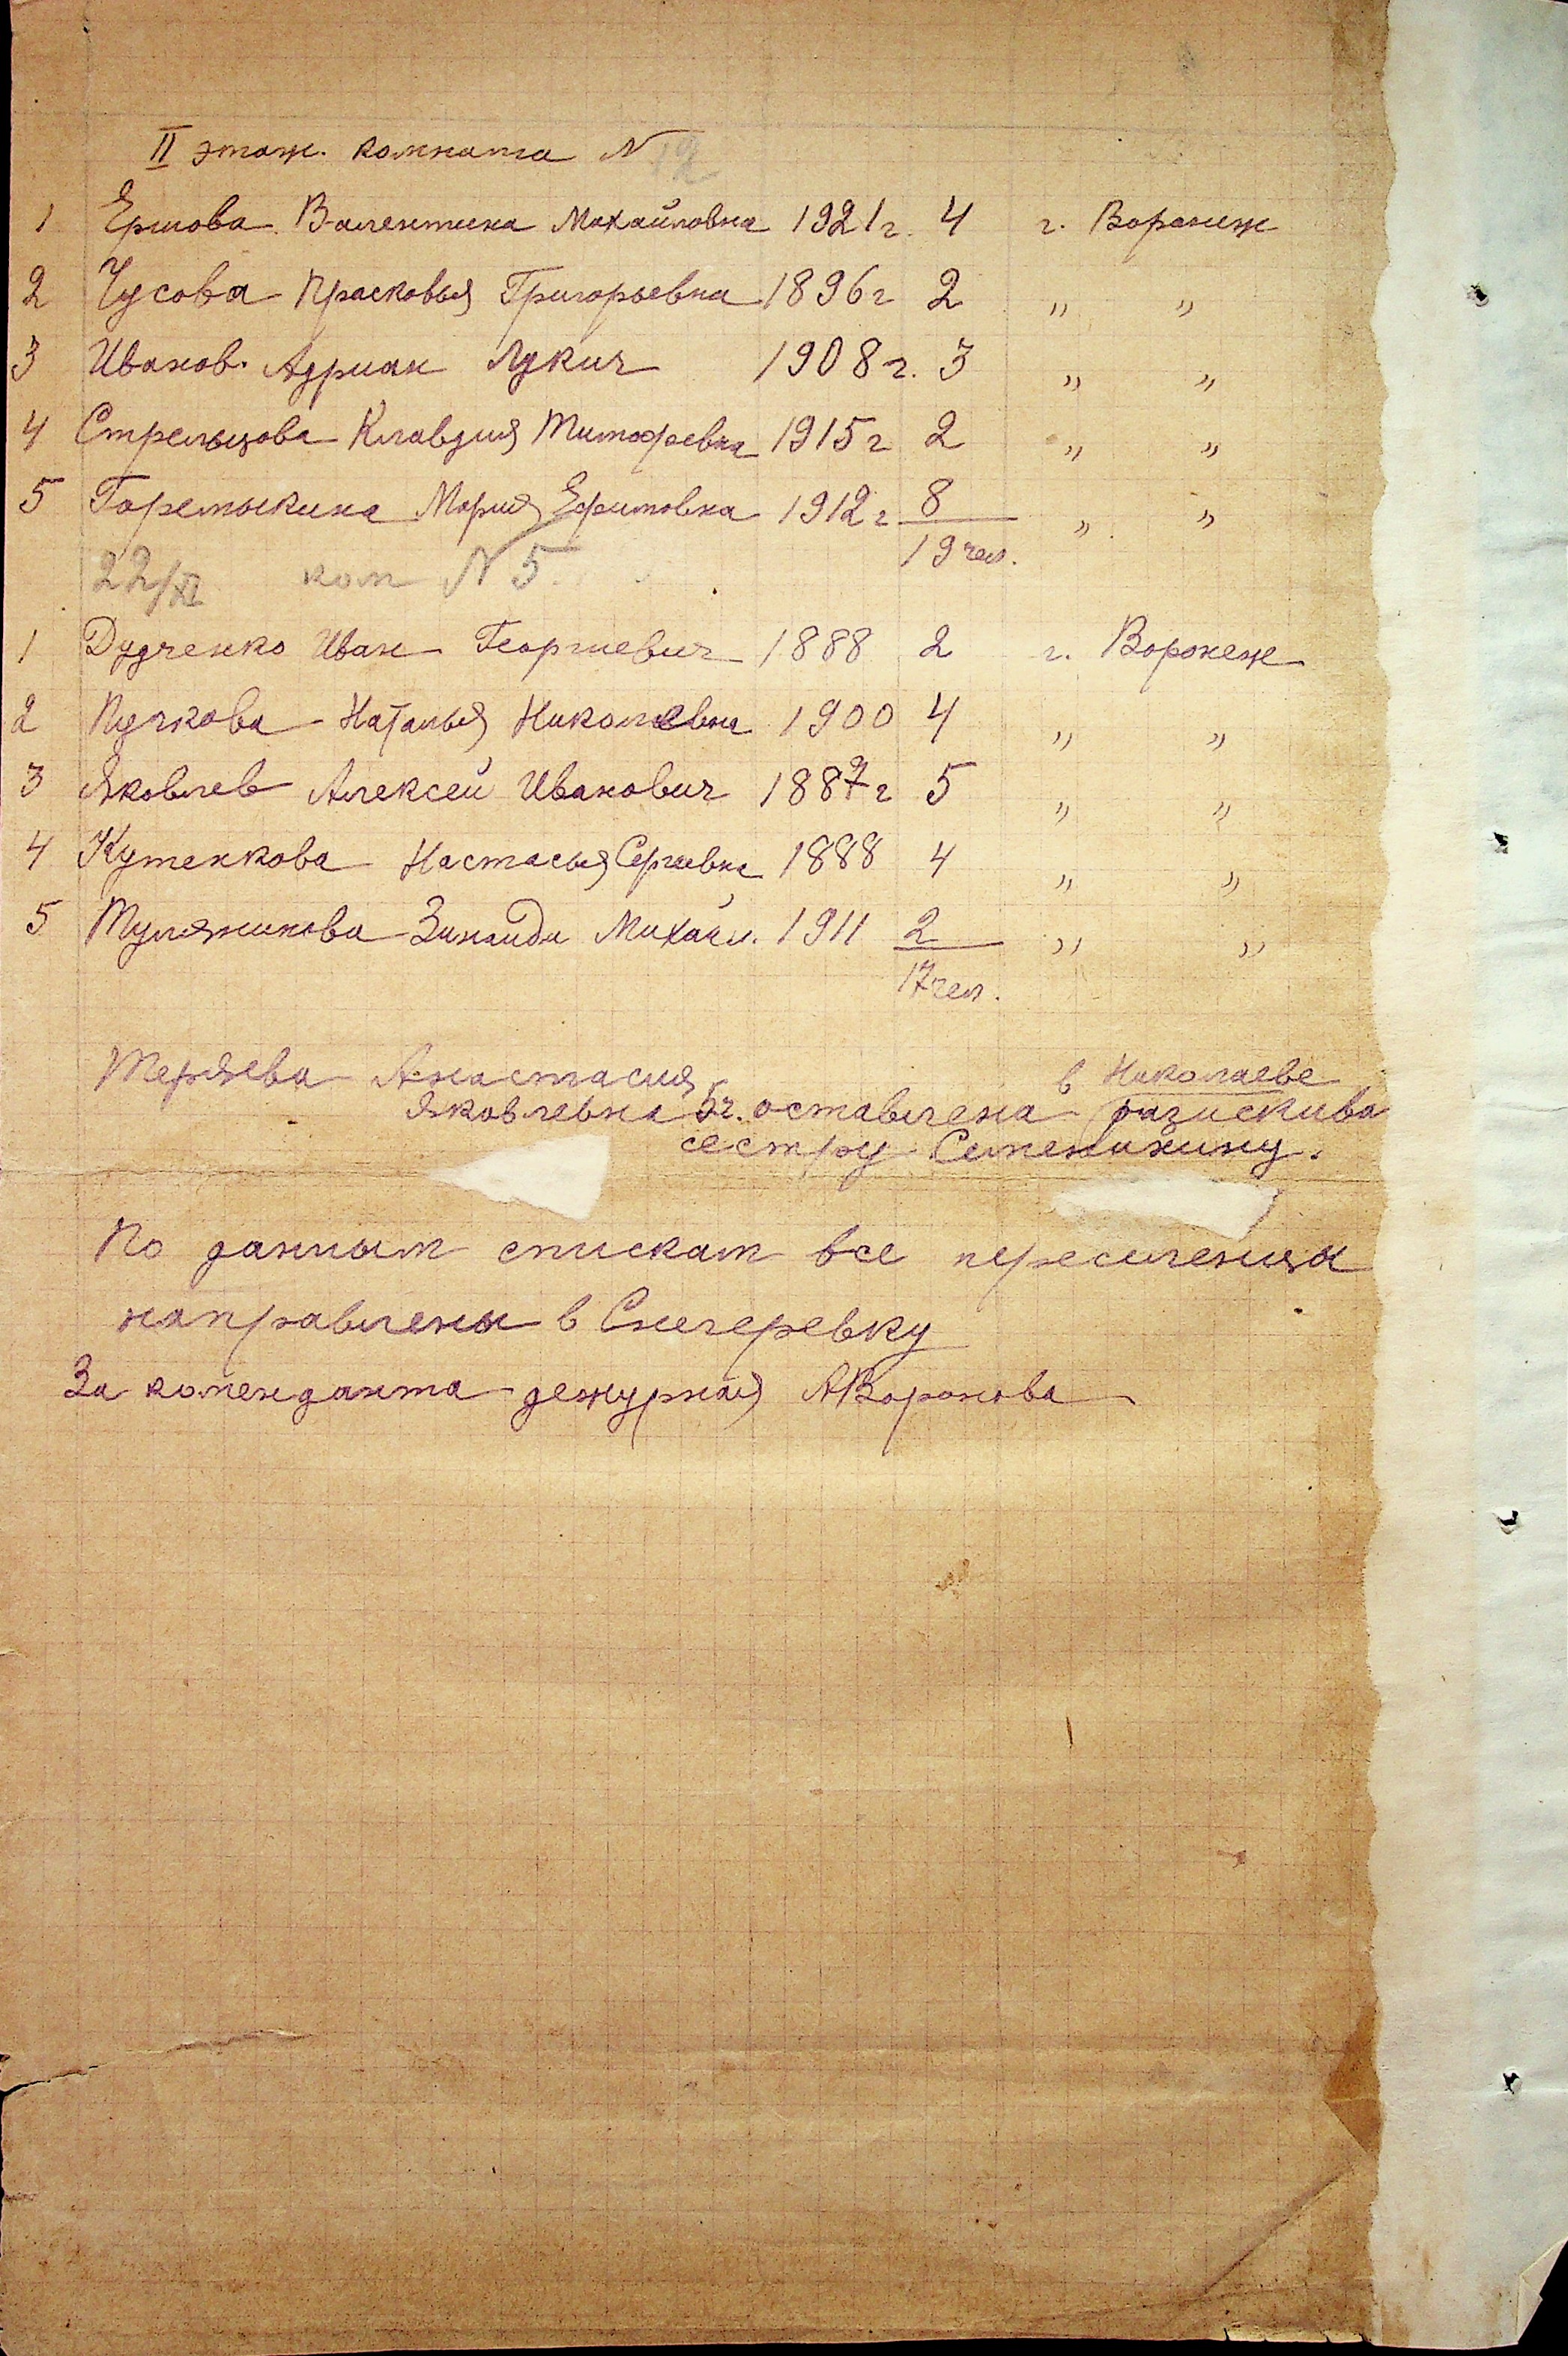 II этаж. комната N 12
1 Ершова Валентина Михайловна 1921 г. 4 г. Воронеж
2 Чусова Прасковья Григорьевна 1896 г 2 " "
3 Иванов Адриан Лукич 1908 г. 3 " "
4 Стрельцова Клавдия Тимофеевна 1915 г 2 " "
5 Горемыкина Мария Ефимовна 1912 г 8 " "
19 чел.
22/XI ком N 5
1 Дудченко Иван Георгиевич 1888 2 г. Воронеж
2 Пучкова Наталья Николаевна 1900 4 " "
3 Яковлев Алексей Иванович 1887 г 5 " "
4 Кутенкова Настасья Сергеевна 1888 4 " "
5 Тулянинова Зинаида Михайл. 1911 2 " "
17 чел.
Теряева Анастасия в Николаеве
Яковлевна 5 ч. оставлена разискива
сестру Семенихину.
По данным спискам все переселенцы
направлены в Снегеревку
За коменданта дежурная АВоронова